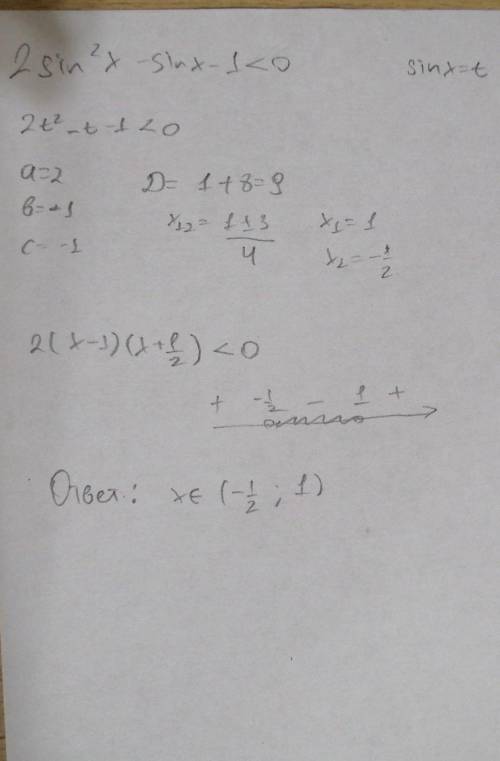 2sin²x - sinx - 1 < 0 sinx = t
2t² - t - 1 < 0
a=2
D = 1 + 8 = 9
b=-1
x₁₂ = (1 ± 3)/4 x₁ = 1
c=-1
x₂ = -1/2
2(x-1)(x+1/2) < 0
+ -1/2 - 1 +
Ответ: x∈ (-1/2; 1)